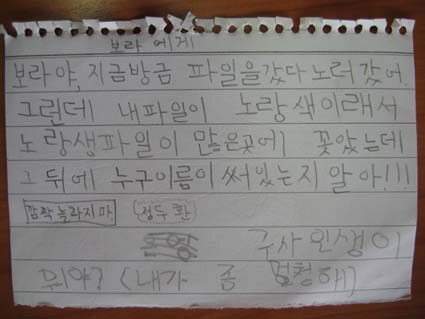 보라에게
보라야, 지금방금 파일을갔다 노러갔어.
그런데 내파일이 노랑색이래서
노랑생파일이 많은곳에 꽂았는데
그 뒤에 누구이름이 써있는지 알아!!!
깜짝놀라지마. 정두환
구사인생이
뭐야? (내가 좀 멍청해)